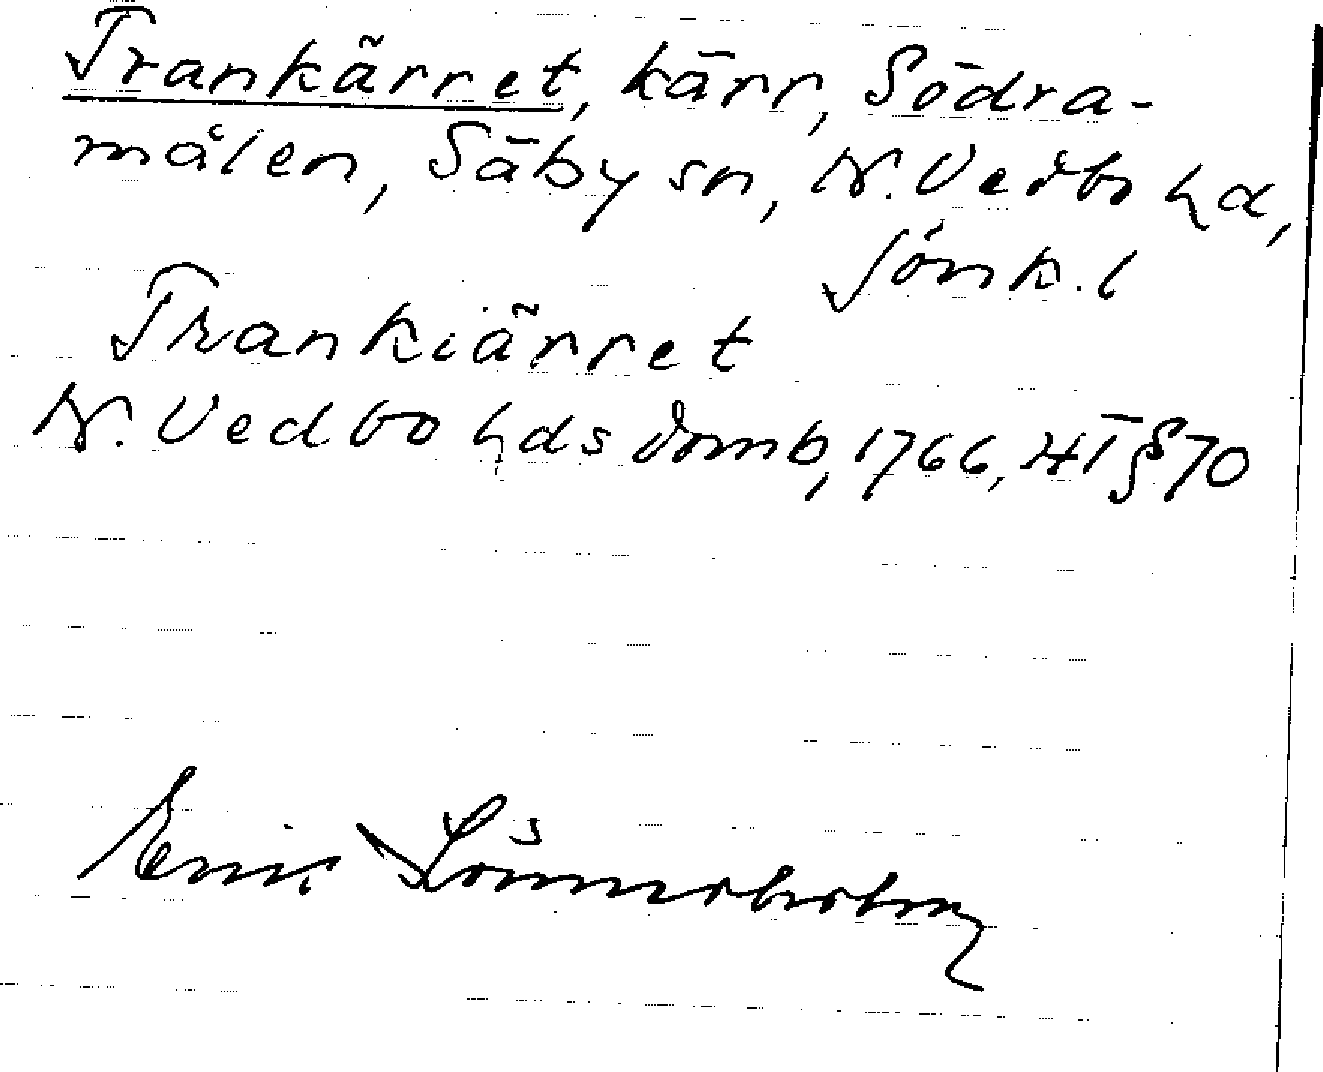 Trankärret, kärr, Södra-
målen, Säby sn, N. Vedbo hd,
Jönk. l
Trankiärret
N. Vedbo hds domb, 1766, HT §70
Eric